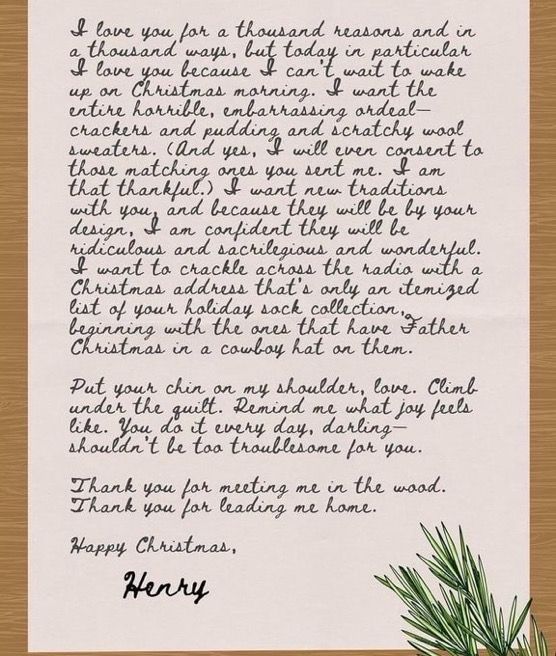 I love you for a thousand reasons and in
a thousand ways, but today in particular
I love you because I can't wait to wake
up on Christmas morning. I want the
entire horrible, embarrassing ordeal—
crackers and pudding and scratchy wool
sweaters. (And yes, I will even consent to
those matching ones you sent me. I am
that thankful.) I want new traditions
with you, and because they will be by your
design, I am confident they will be
ridiculous and sacrilegious and wonderful.
I want to crackle across the radio with a
Christmas address that's only an itemized
list of your holiday sock collection,
beginning with the ones that have Father
Christmas in a cowboy hat on them.
Put your chin on my shoulder, love. Climb
under the quilt. Remind me what joy feels
like. You do it every day, darling—
shouldn't be too troublesome for you.
Thank you for meeting me in the wood.
Thank you for leading me home.
Happy Christmas,
Henry